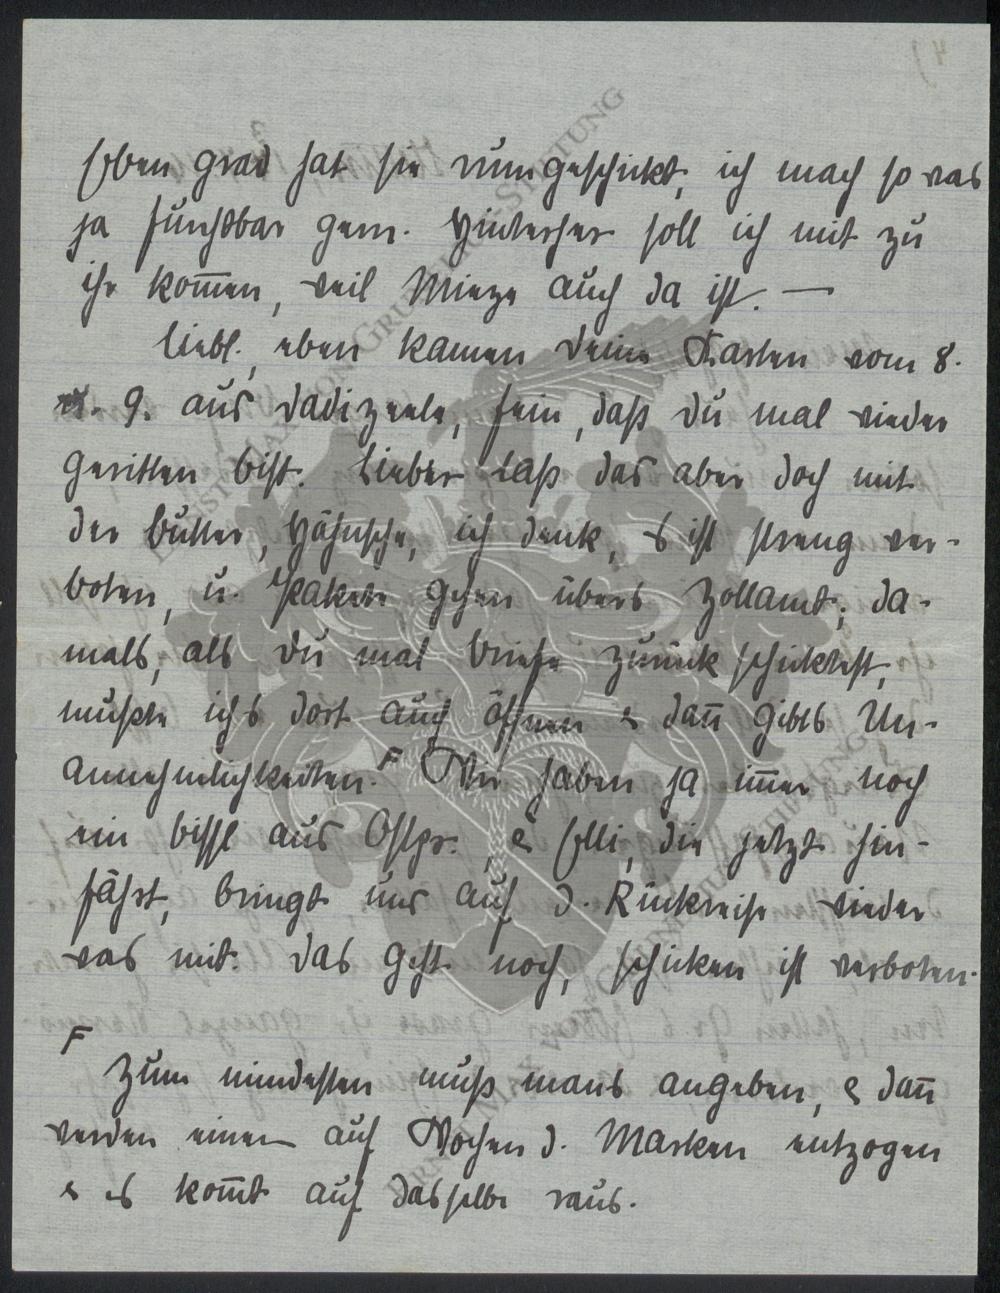 4)
Eben grad hat sie rumgeschickt, ich mach so was
ja furchtbar gern. Hinterher soll ich mit zu
ihr kom̅en, weil Mieze auch da ist. —
Liebl., eben kamen deine Karten vom 8.
u. 9. aus Dadizeele, fein, daß du mal wieder
geritten bist. Lieber laß das aber doch mit
der Butter, Hähnsche, ich denk, es ist streng ver-
boten, u. Pakete gehen übers Zollamt; da-
mals, als du mal Briefe zurück schicktest,
mußte ichs dort auch öffnen & dan̅ gibts Un-
annehmlichkeiten. F Wir haben ja im̅er noch
ein bissl aus Ostpr., & Elli, die jetzt hin-
fährt, bringt uns auf d. Rückreise wieder
was mit. Das geht noch, schicken ist verboten.
F
Zum mindesten muß mans angeben, & dan̅
werden einem auf Wochen d. Marken entzogen
& es kom̅t auf dasselbe raus.